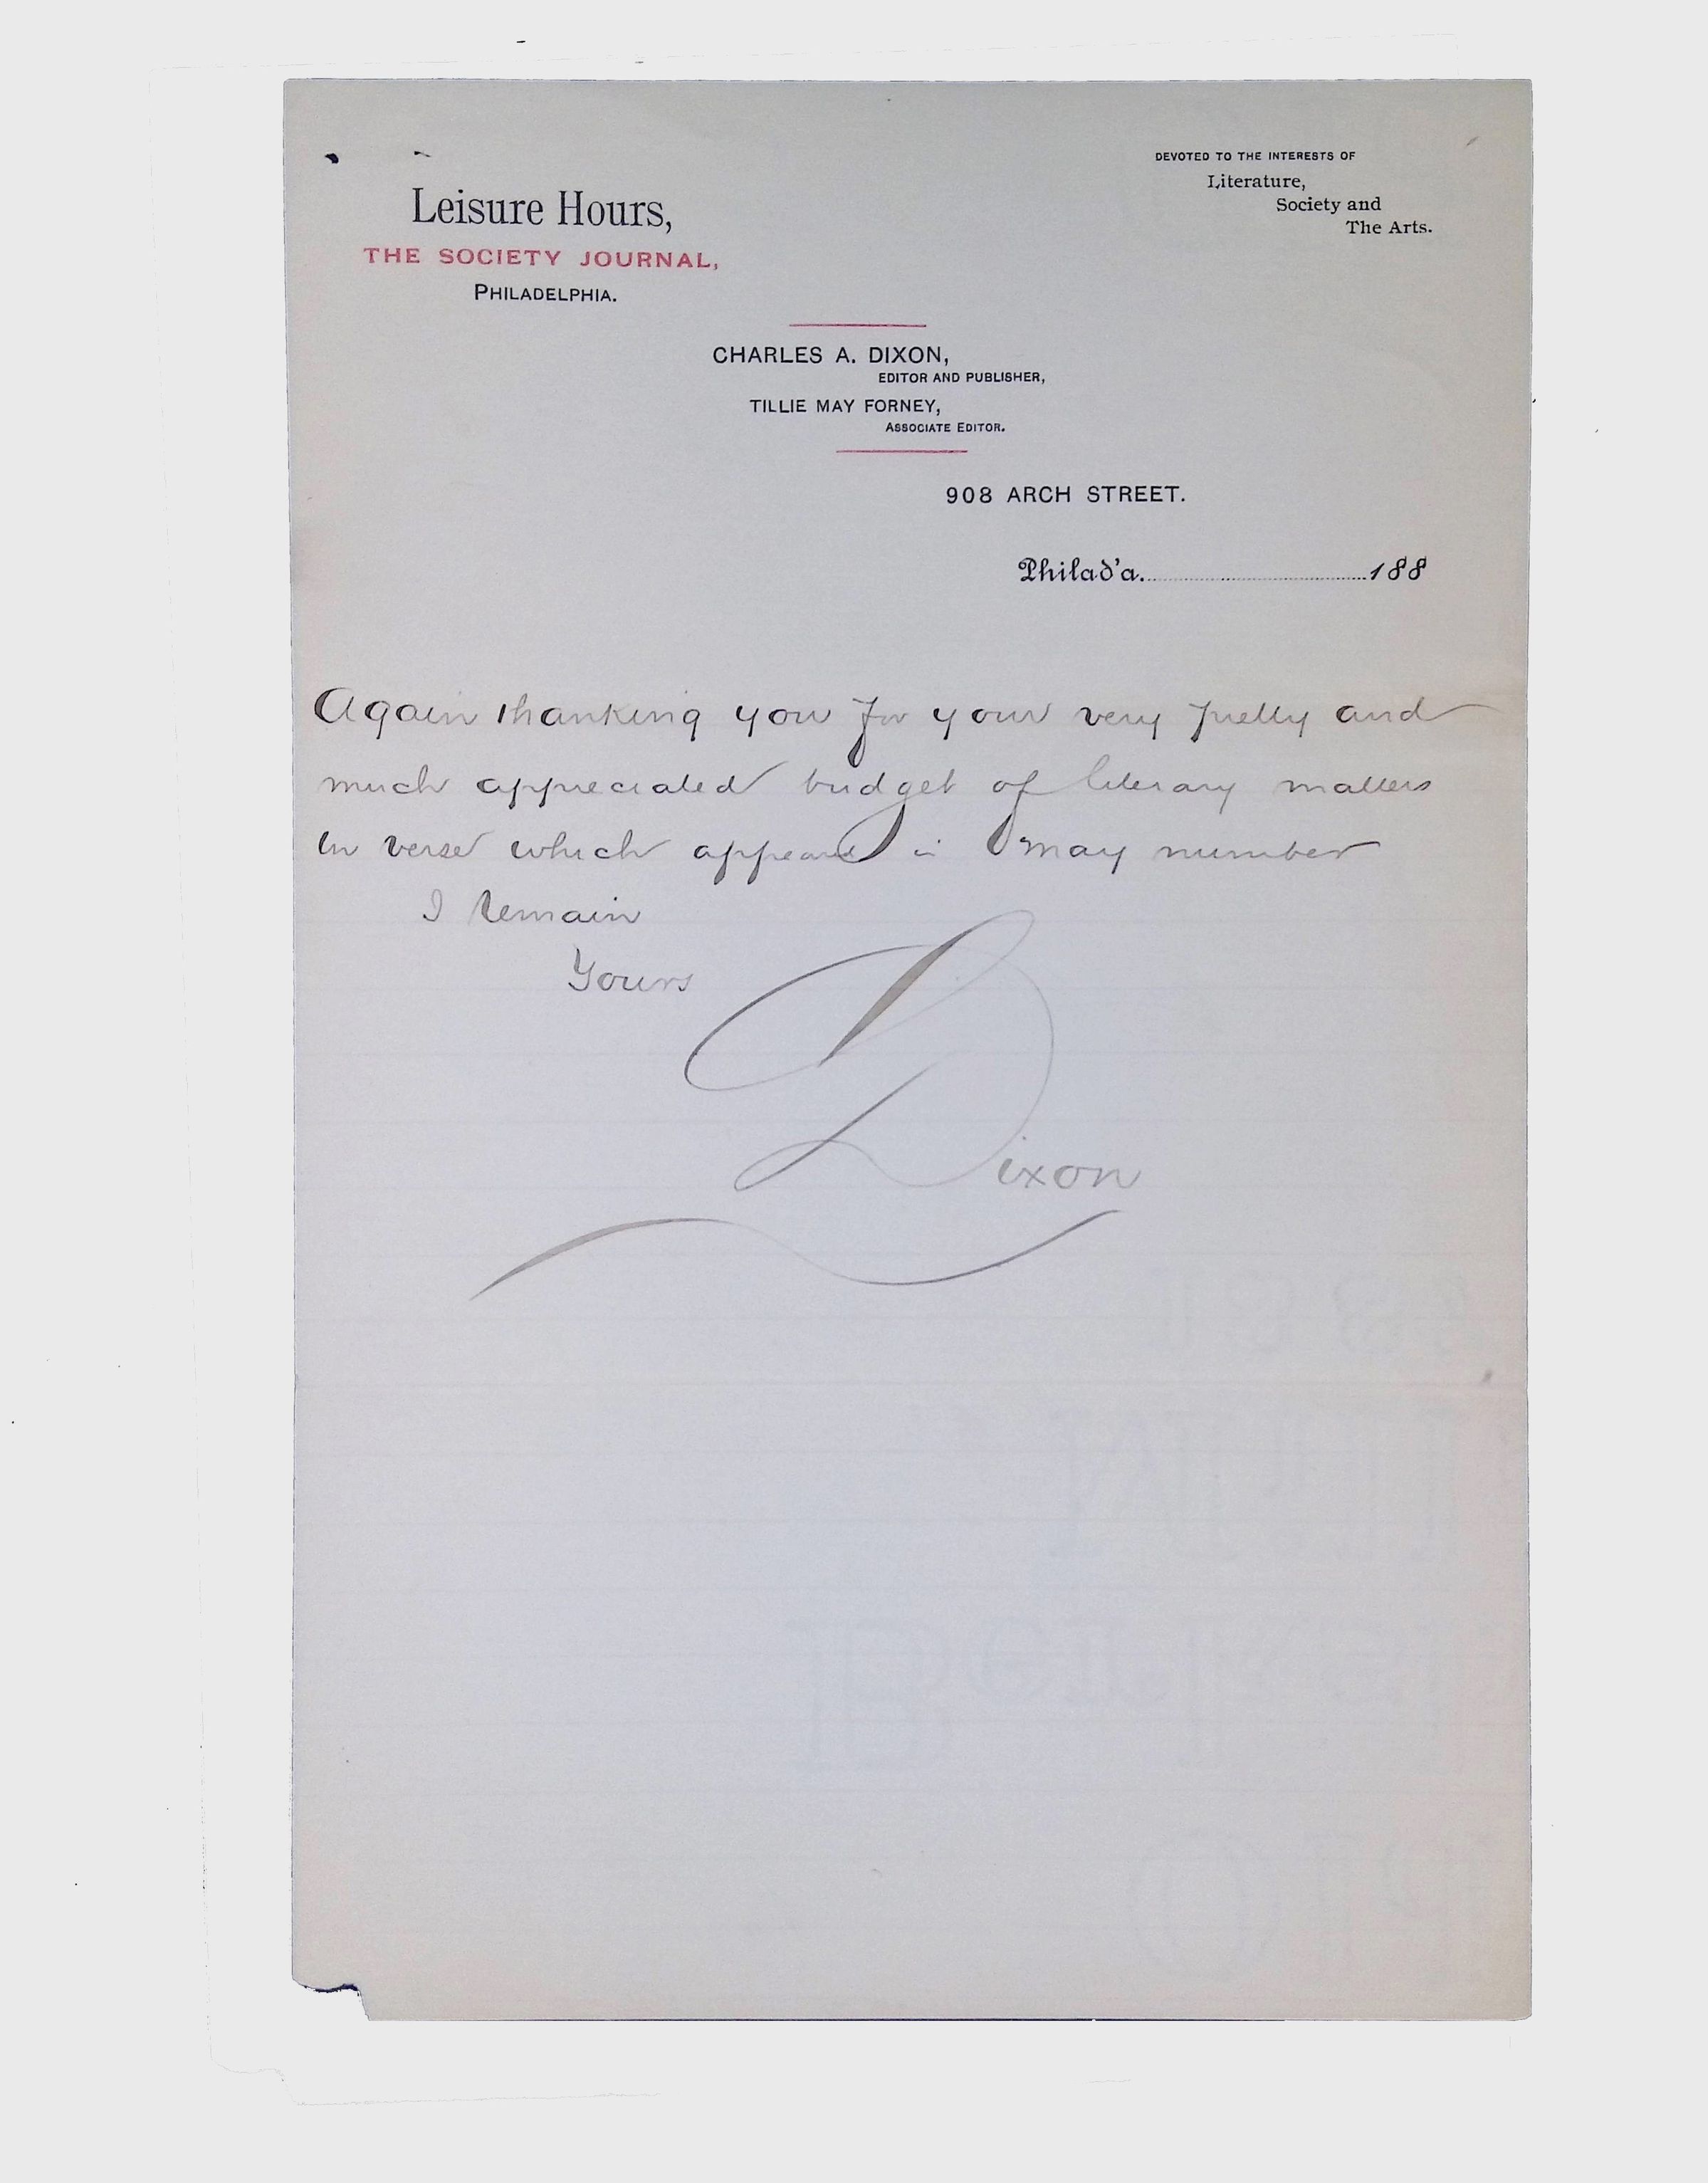 DEVOTED TO THE INTERESTS OF
Literature,
Society and
The Arts.
Leisure Hours,
THE SOCIETY JOURNAL,
PHILADELPHIA.
CHARLES A. DIXON,
EDITOR AND PUBLISHER,
TILLIE MAY FORNEY,
ASSOCIATE EDITOR.
908 ARCH STREET.
Philad'a. 188
Again thanking you for your very pretty and
much appreciated budget of literary matters
in verse which appears in May number
I remain
Yours
Dixon